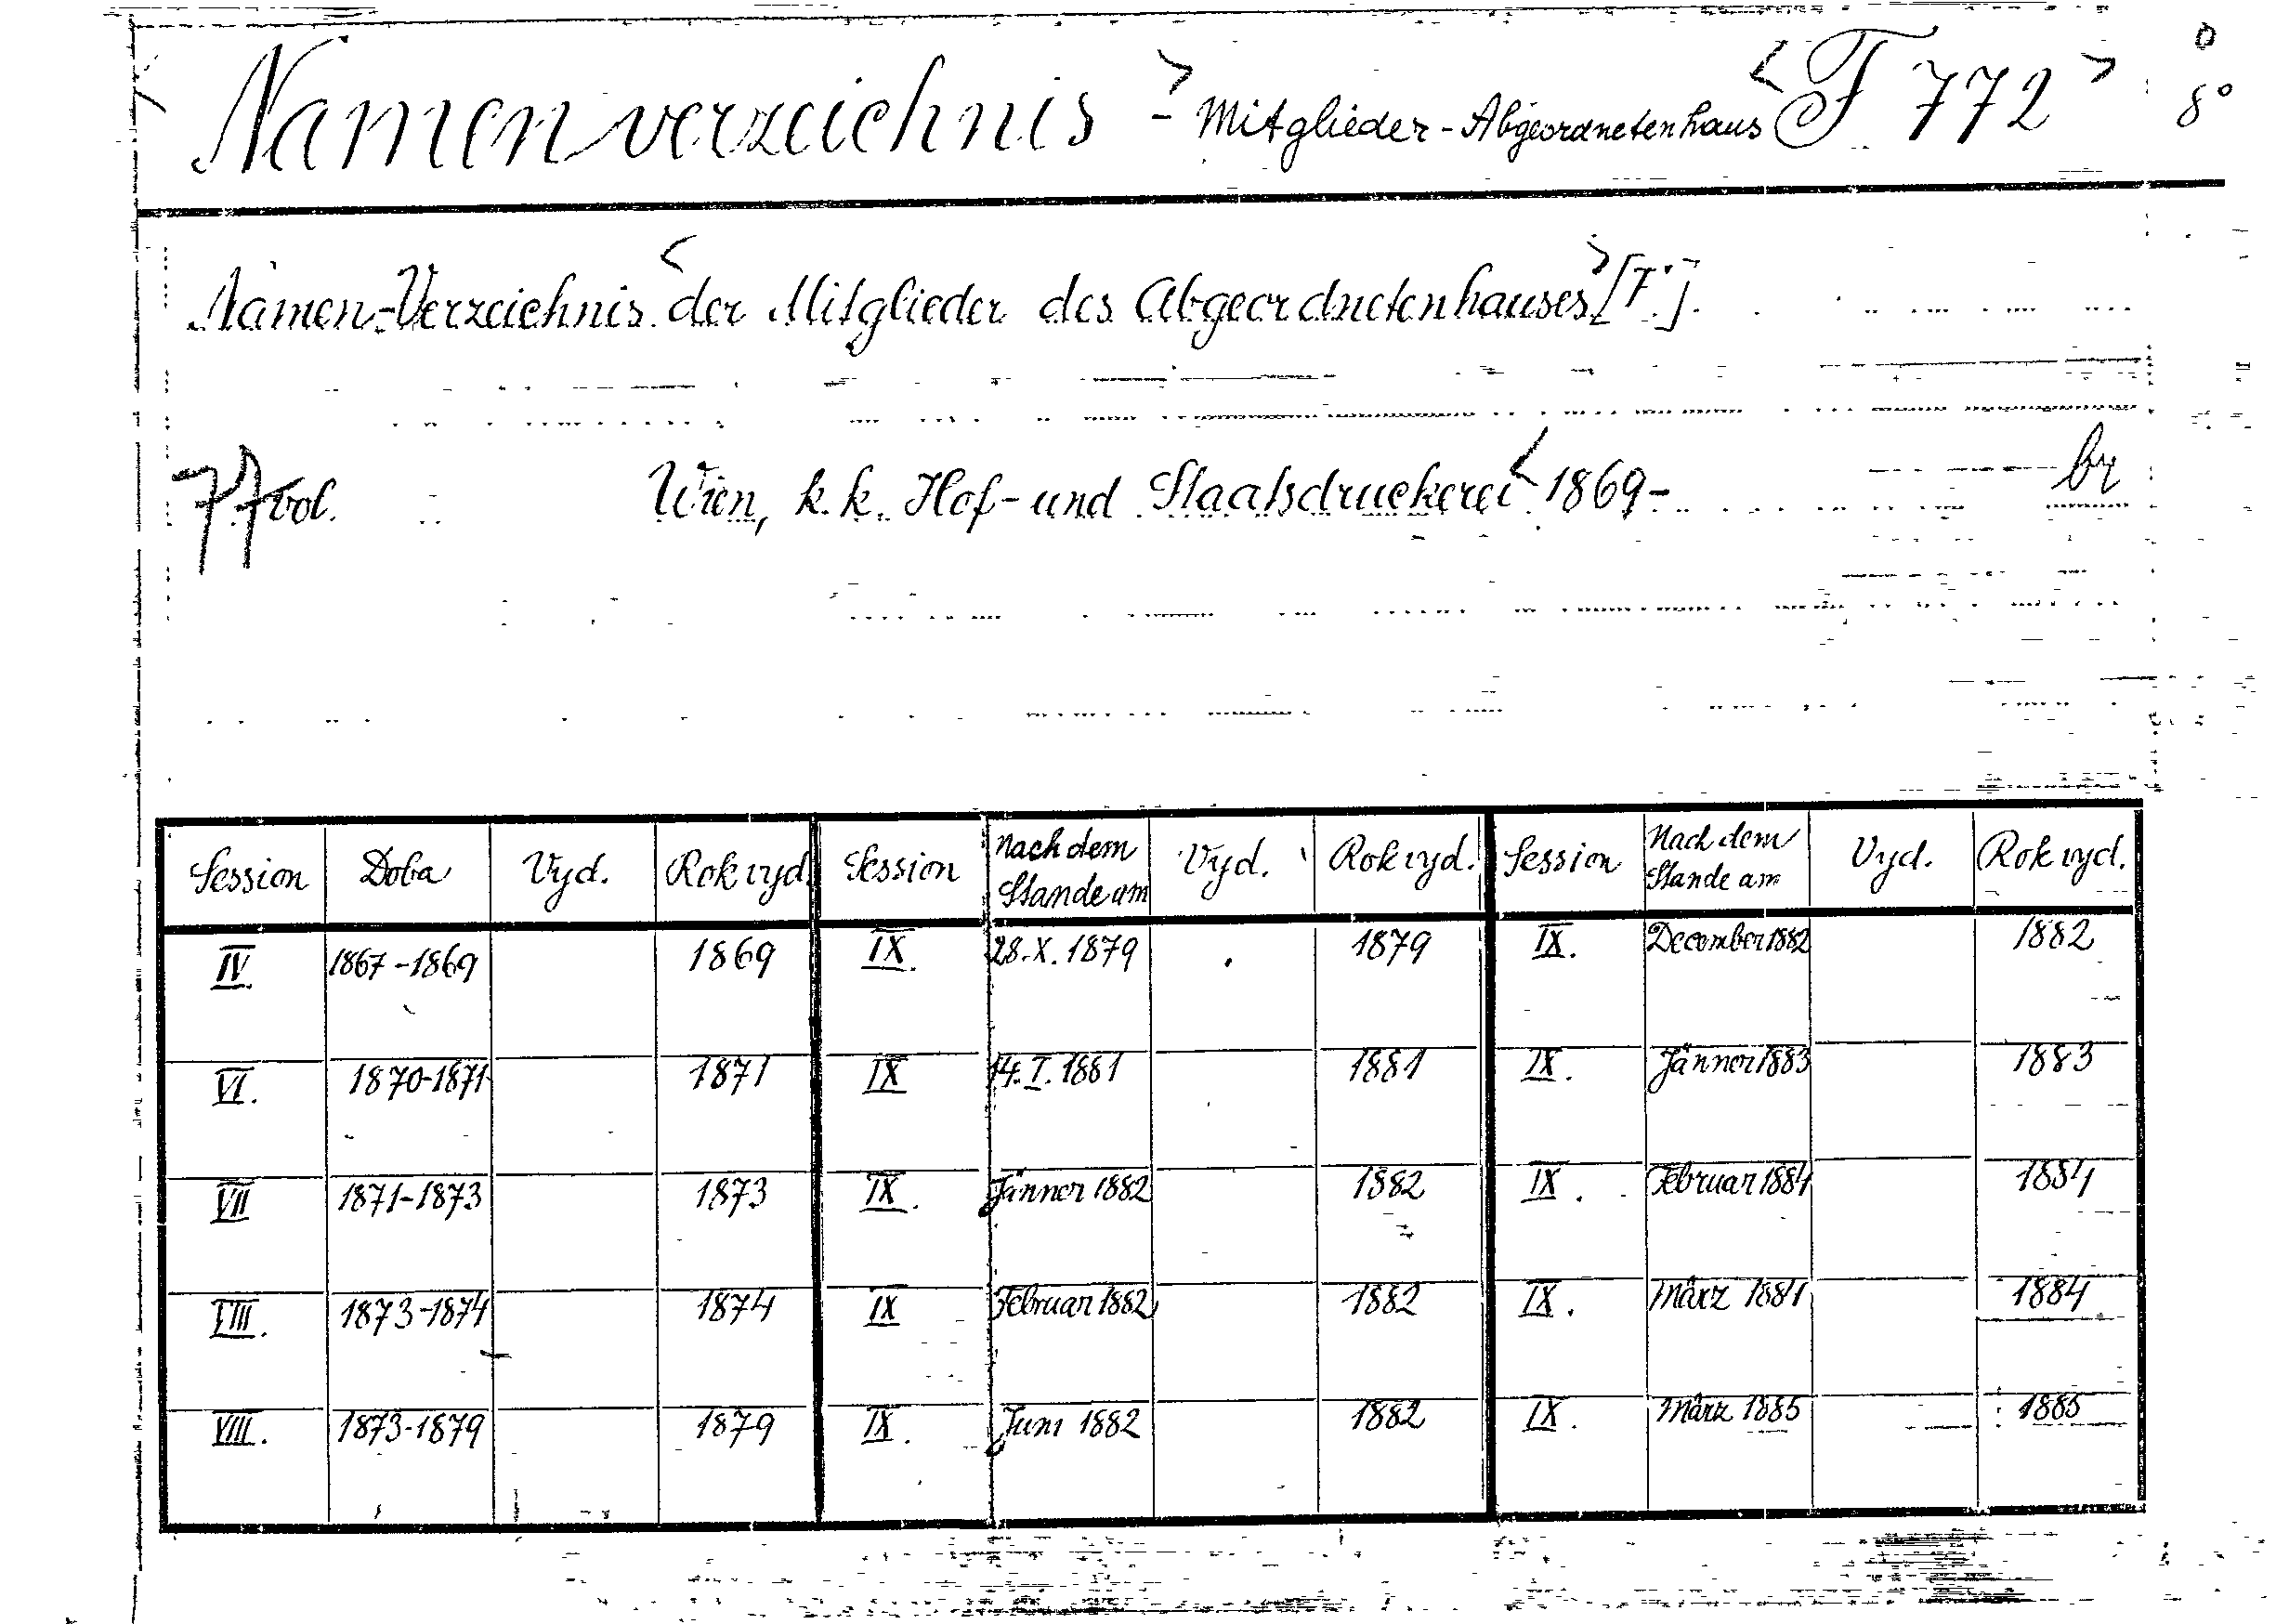 Namenverzeichnis - Mitglieder-Abgeordnetenhaus <F 772> 8°
Namen-Verzeichnis <der Mitglieder des Abgeordnetenhauses> [F.].
vol. Wien, k.k. Hof- und Staatsdruckerei < 1869- br
Session Doba Vyd. Rok vyd. Session Nach dem Stande am Vyd. Rok vyd. Session Nach dem Stande am Vyd. Rok vyd.
IV. 1867-1869 1869 IX. 28.X.1879 1879 IX. December 1882 1882
VI. 1870-1871 1871 IX 14.I.1881 1881 IX. Jänner 1883 1883
VII 1871-1873 1873 IX. Jänner 1882 1882 IX. Februar 1884 1884
VIII. 1873-1874 1874 IX Februar 1882 1882 IX. März 1884 1884
VIII. 1873-1879 1879 IX. Juni 1882 1882 IX. März 1885 1885